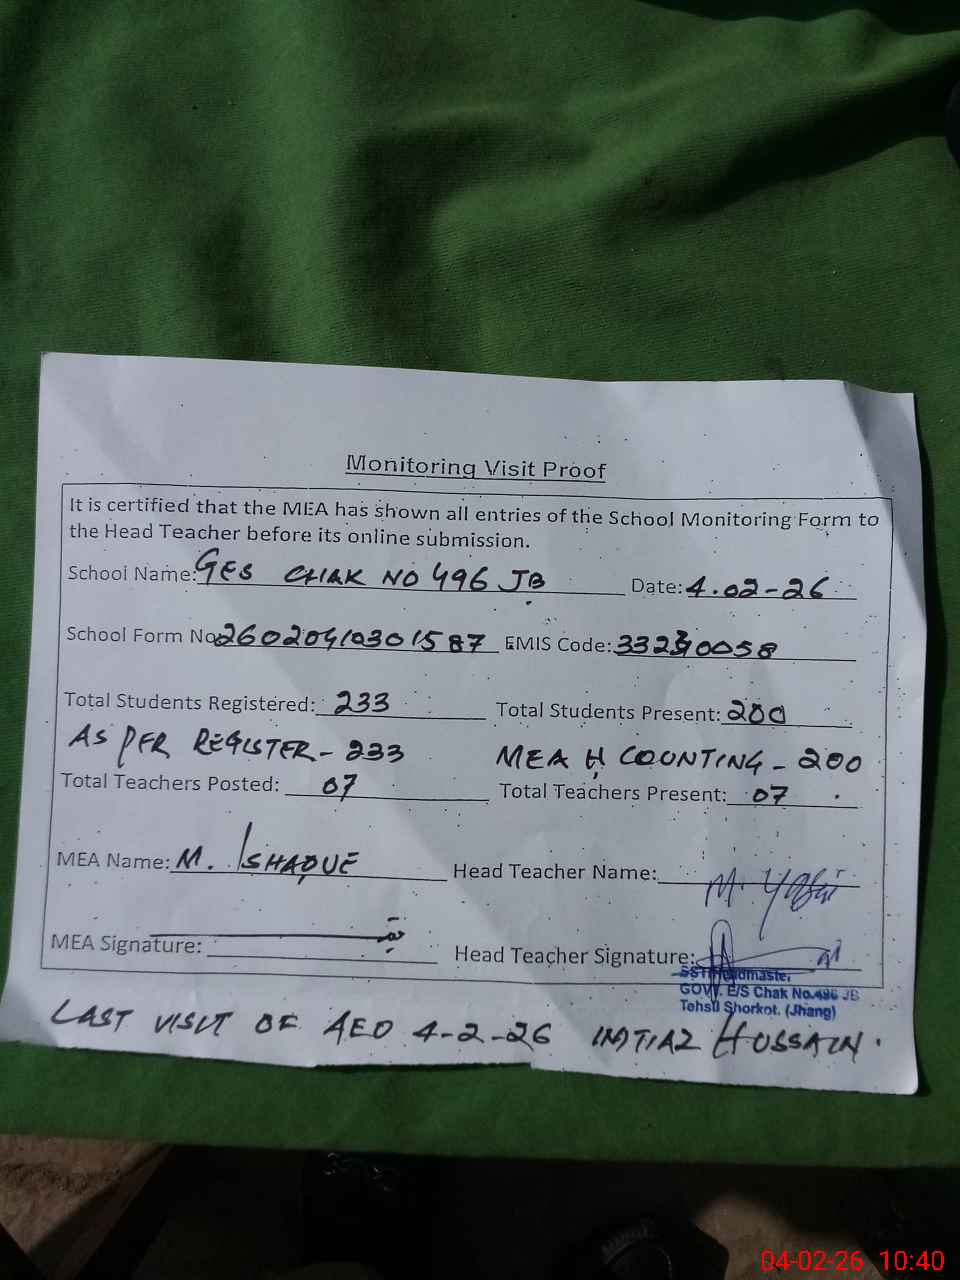 Monitoring Visit Proof
It is certified that the MEA has shown all entries of the School Monitoring Form to
the Head Teacher before its online submission.
School Name: GES CHAK NO 496 JB Date: 4.02-26
School Form No 26020410301587 EMIS Code: 33230058
Total Students Registered: 233 Total Students Present: 200
AS PER REGISTER - 233 MEA H COUNTING - 200
Total Teachers Posted: 07 Total Teachers Present: 07
MEA Name: M. ISHAQUE Head Teacher Name: M. Yasir
MEA Signature: Head Teacher Signature:
SST/Headmaster
GOVT. E/S Chak No.496 JB
Tehsil Shorkot. (Jhang)
LAST VISIT OF AEO 4-2-26 IMTIAZ HUSSAIN.
04-02-26 10:40